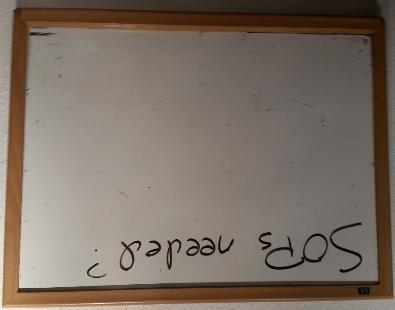 SOPs needed?